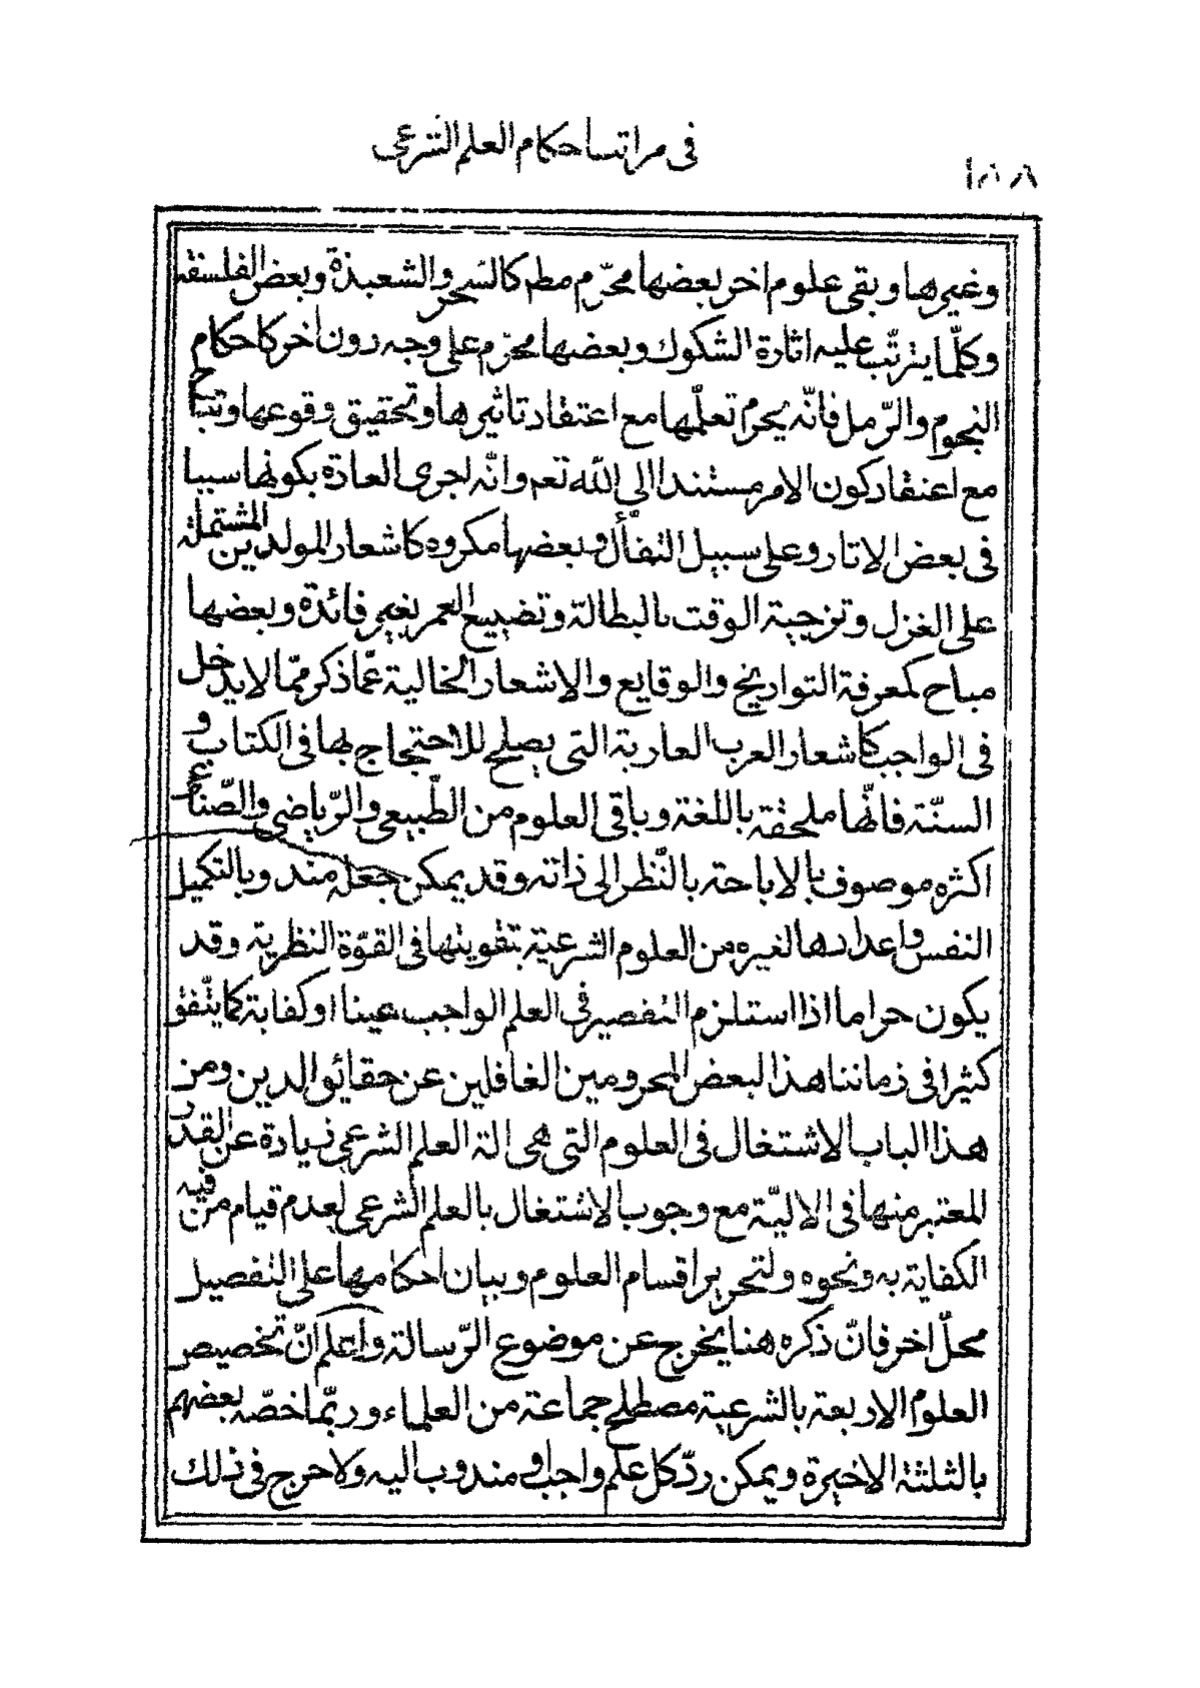 في مراتب احكام العلم الشرعى
١٨٨
وغيرها وبقى علوم اخر بعضها محرّم مطم كالسّحر والشعبذة وبعض الفلسفة
وكلّما يترتّب عليه اثارة الشكوك وبعضها محرّم على وجه دون اخر كاحكام
النجوم والرّمل فانّه يحرم تعلّمها مع اعتقاد تاثيرها وتحقيق وقوعها وتباح
مع اعتقاد كون الامر مستندا الى اللّه تعم وانّه اجرى العادة بكونها سببا
فى بعض الاثار وعلى سبيل التفأّل وبعضها مكروه كاشعار المولدين المشتملة
على الغزل وتزجية الوقت بالبطالة وتضييع العمر بغير فائدة وبعضها
مباح كمعرفة التواريخ والوقايع والاشعار الخالية عمّا ذكر ممّا لا يدخل
فى الواجب كاشعار العرب العاربة التى يصلح للاحتجاج بها فى الكتاب و
السنّة فانّها ملحقة باللغة وباقى العلوم من الطّبيعى والرّياضى والصّناعى
اكثره موصوف بالاباحة بالنّظر الى ذاته وقد يمكن جعله مندوبا لتكميل
النفس واعدادها لغيره من العلوم الشرعيّة بتقويتها فى القوّة النظرية وقد
يكون حراما اذا استلزم التقصير فى العلم الواجب عينا او كفاية كما يتّفق
كثيرا فى زماننا هذا لبعض المحرومين الغافلين عن حقائق الدين ومن
هذا الباب الاشتغال فى العلوم التى هى الة العلم الشرعى زيادة عن القدر
المعتبر منها فى الاليّة مع وجوب الاشتغال بالعلم الشرعى لعدم قيام من فيه
الكفاية به ونحوه ولتحرير اقسام العلوم وبيان احكامها على التفصيل
محلّ اخر فانّ ذكره هنا يخرج عن موضوع الرّسالة واعلم انّ تخصيص
العلوم الاربعة بالشرعيّة مصطلح جماعة من العلماء وربّما خصّه بعضهم
بالثلثة الاخيرة ويمكن ردّ كل علم واجب او مندوب اليه ولا حرج فى ذلك